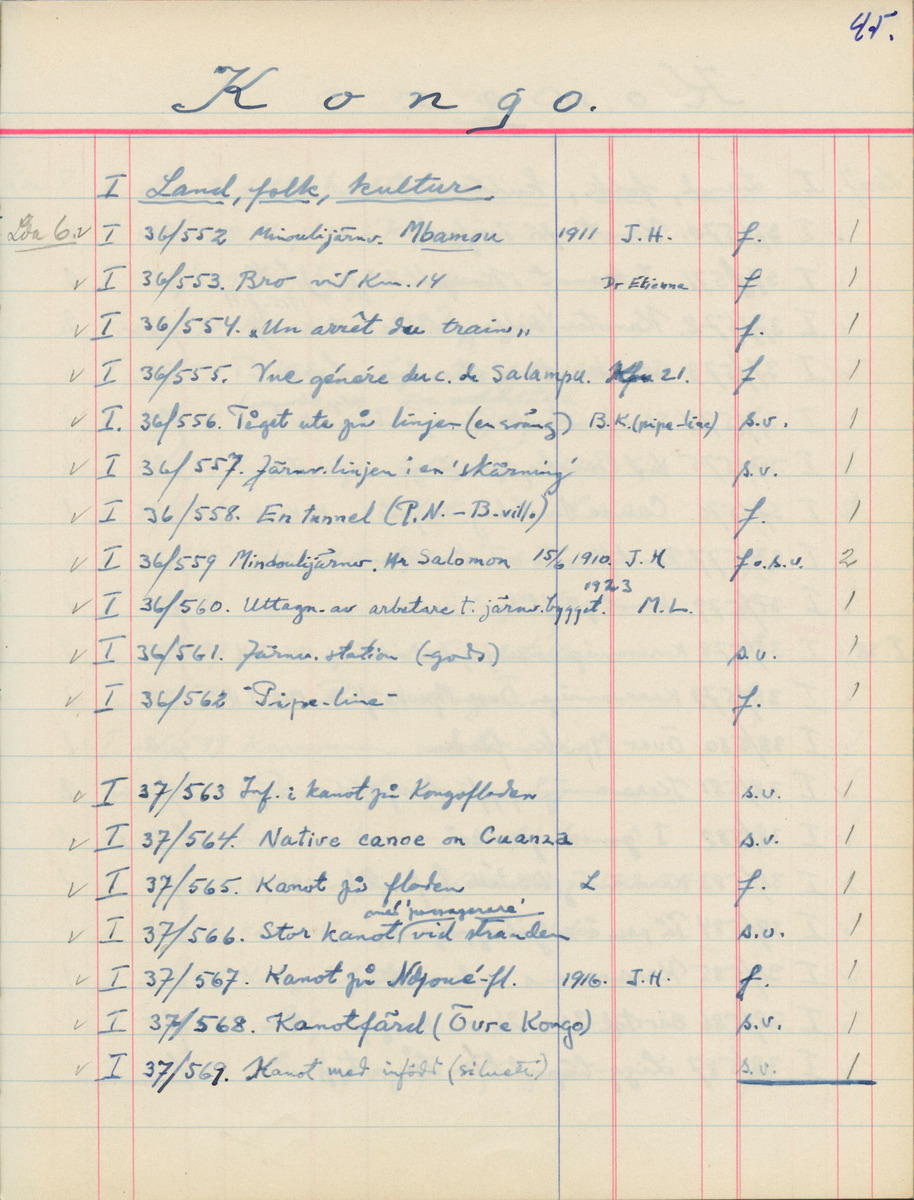 45.
Kongo.
I Land, folk, kultur.
Låda 6. v I 36/552 Mindoulijärnv. Mbamou 1911 J.H. f. 1
v I 36/553. Bro vid Km. 14 Dr Etienne f 1
v I 36/554. „Un arrêt du train„ f. 1
v I 36/555. Vue génére du c. de Salampu. 21. f 1
v I. 36/556. Tåget ute på linjen (en sväng) B.K. (pipe-line) s.v. 1
v I 36/557. Järnv.linjen i en 'skärning' s.v. 1
v I 36/558. En tunnel (P.N. – B-ville) f. 1
v I 36/559 Mindoulijärnv. Hr Salomon 15/6 1910. J.H f. o. s.v. 2
v I 36/560. Uttagn. av arbetare t. järnv.bygget. 1923 M.L. 1
v I 36/561. Järnv. station (gods) s.v. 1
v I 36/562 "Pipe-line" f. 1
v I 37/563 Inf. i kanot på Kongofloden s.v. 1
v I 37/564. Native canoe on Cuanza s.v. 1
v I 37/565. Kanot på floden L f. 1
med 'passagerare'
v I 37/566. Stor kanot vid stranden s.v. 1
v I 37/567. Kanot på -fl. 1916. J.H. f. 1
v I 37/568. Kanotfärd (Övre Kongo) s.v. 1
v I 37/569. Kanot med infödd (siluett) s.v. 1